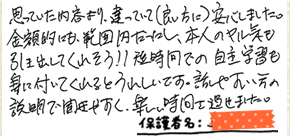 思っていた内容より、違っていて(良い方に)安心しました。
金額的にも、範囲内だし、本人のヤル気も
引き出してくれそう!!後時間での自主学習も
身に付いてくれるとうれしいです。話しやすい方の
説明で聞きやすく、楽しい時間で過せました。
保護者名: